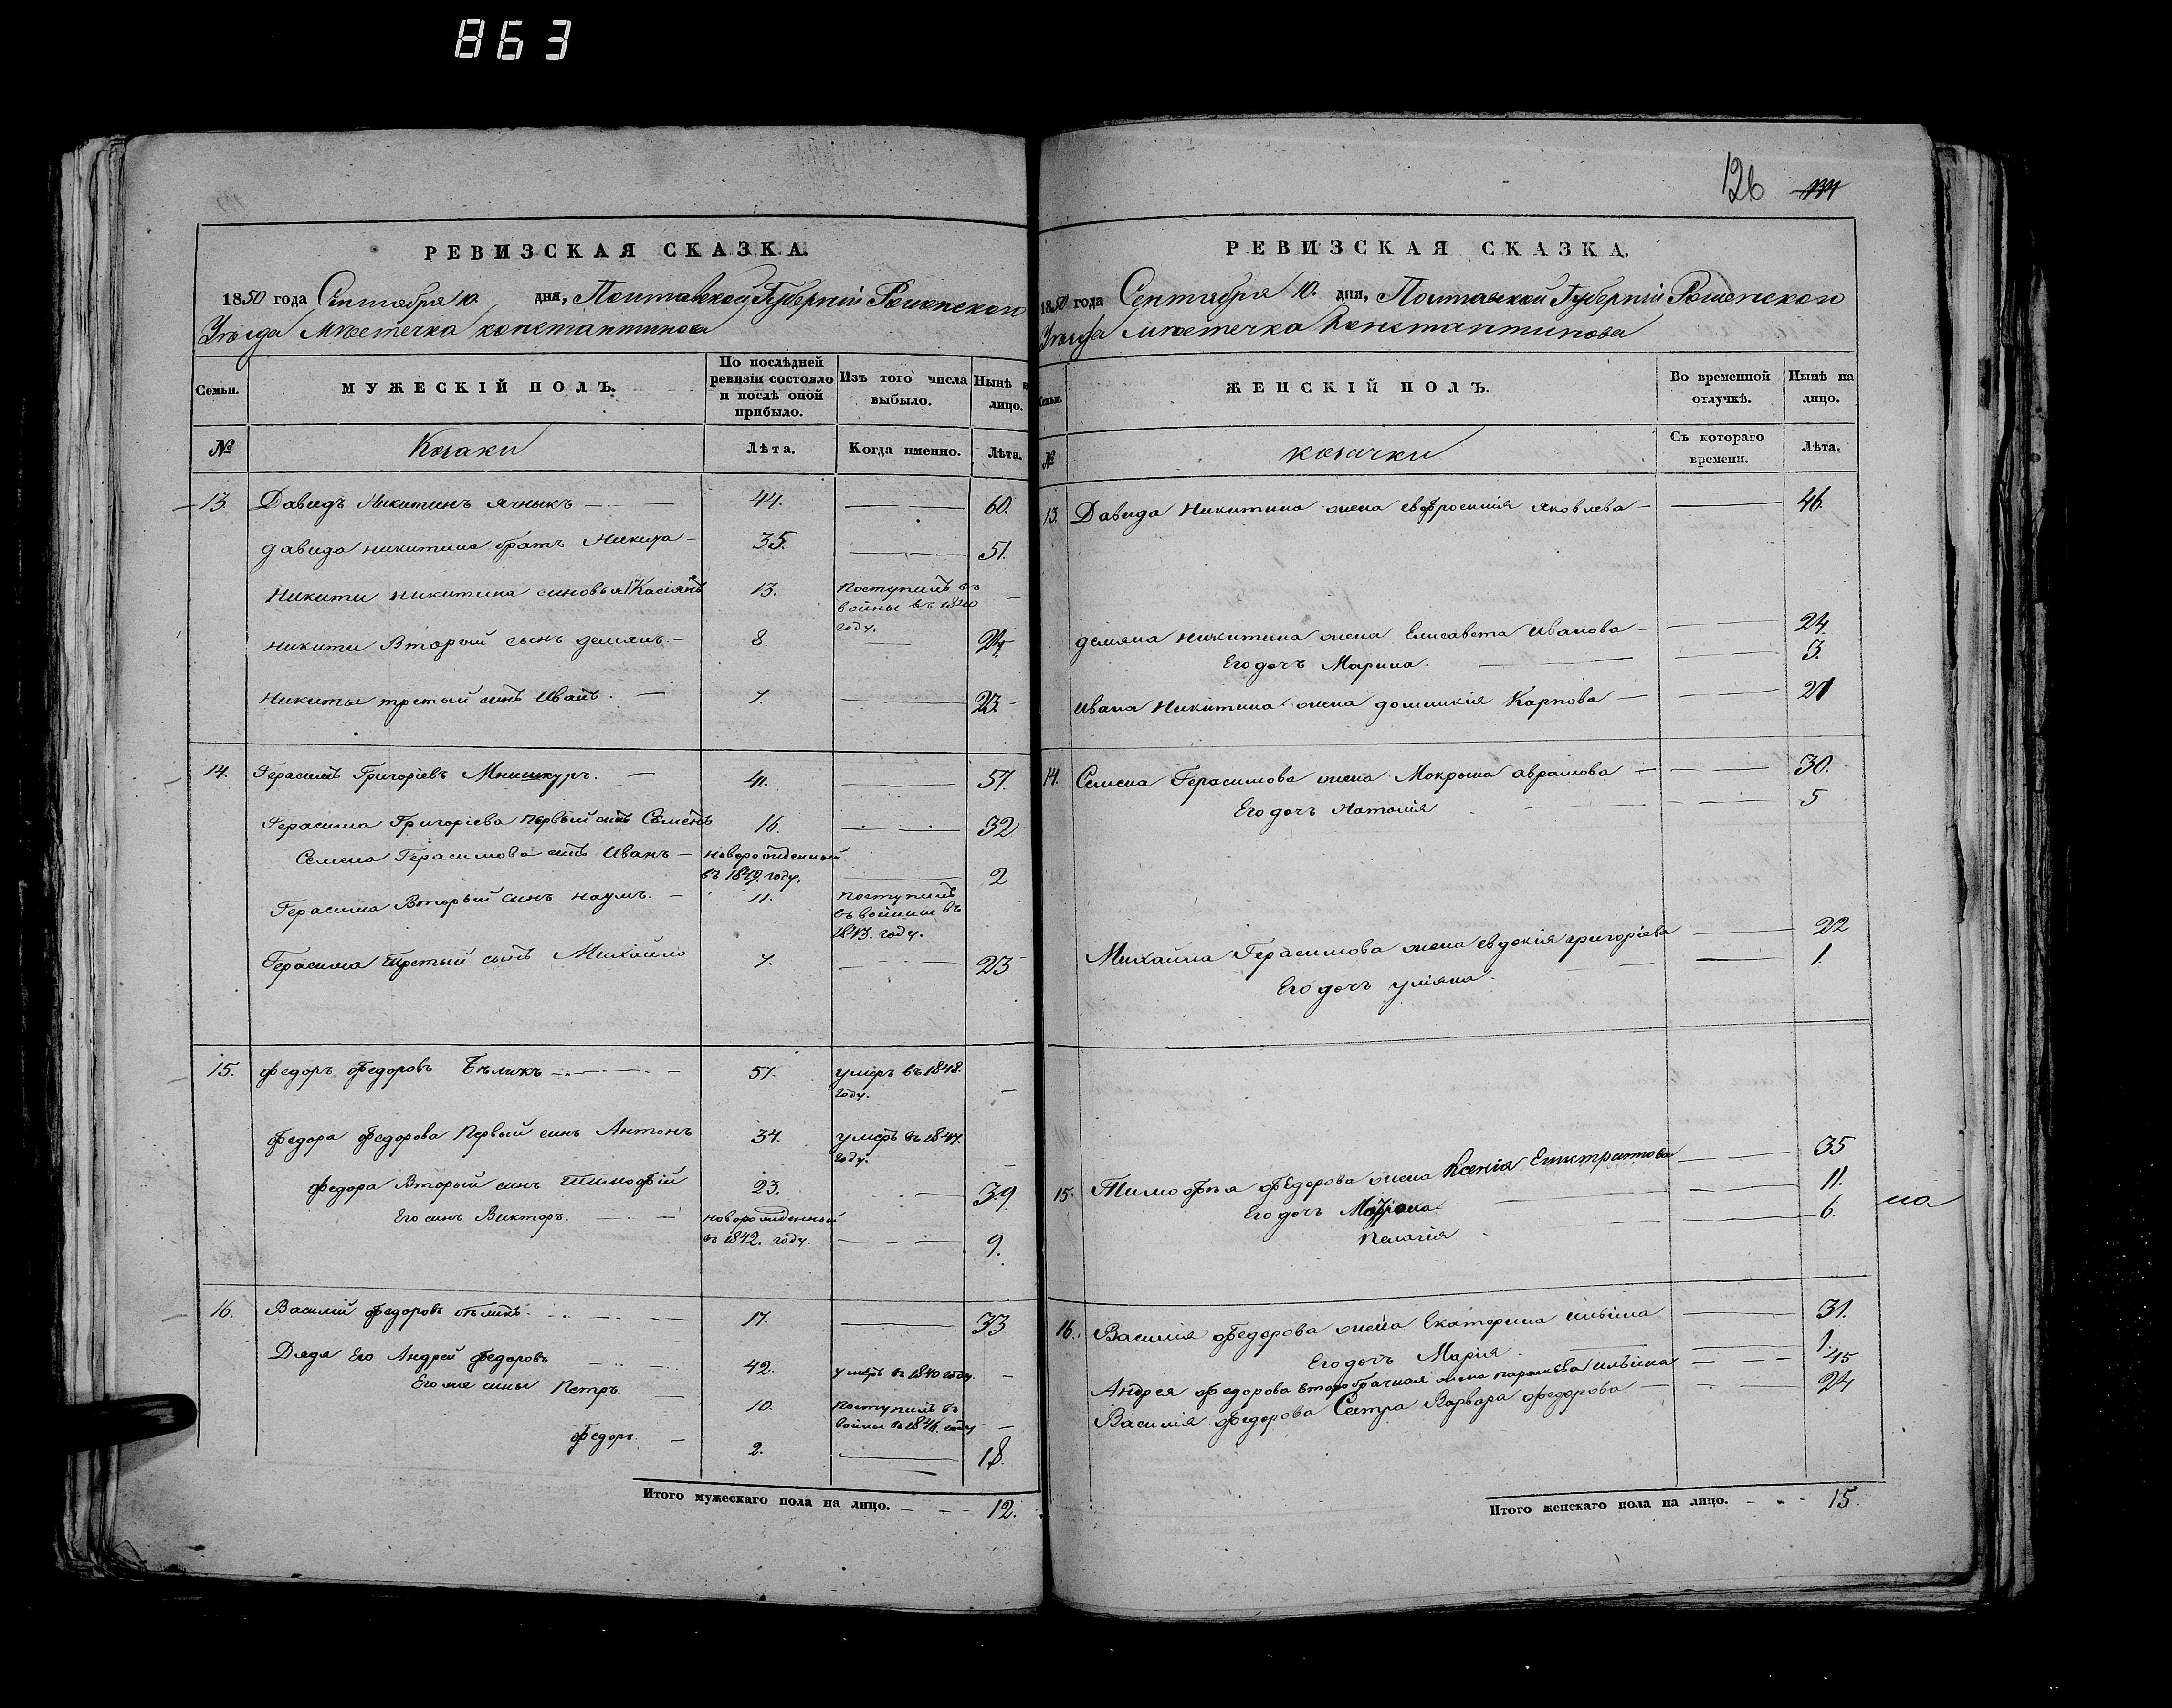 863
РЕВИЗСКАЯ СКАЗКА.
1850 года Сентября 10. дня, Полтавской Губерніи Роменского
Уѣзда Мѣстечка Константинова
Семьи.
МУЖЕСКІЙ ПОЛЪ.
По послѣдней ревизіи состояло и послѣ оной прибыло.
Изъ того числа выбыло.
Нынѣ на лицо.
№
Козаки
Лѣта.
Когда именно.
Лѣта.
13. Давидъ Никитинъ Ячныкъ 44. 60.
Давида Никитина братъ Никита 35. 51.
Никити Никитина синовья 1й Касіянъ 13. Поступилъ въ войны въ 1840 году.
Никити Вторый сынъ Демянъ 8. 24.
Никиты третый синъ Иванъ. 7. 23
14. Герасимъ Григоріевъ Мнишкуръ. 41. 57.
Герасима Григоріева первый синъ Семенъ 16. 32
Семена Герасимова синъ Иванъ новорожденный въ 1849. году. 2
Герасима Вторый синъ Наумъ. 11. поступилъ въ войны въ 1843. году.
Герасима Третый сынъ Михайло 7. 23
15. Федоръ Федоровъ Бѣликъ 57. умеръ въ 1848. году.
Федора Федорова Первый синъ Антонъ 34. умеръ въ 1847. году.
Федора Вторый синъ Тимофій 23. 39
Его синъ Викторъ. новорожденный въ 1842. году. 9.
16. Василій Федоровъ Бѣликъ. 17. 33
Дядя Его Андрей Федоровъ 42. умеръ въ 1840 году.
Его же сыны Петръ 10. поступилъ въ войны въ 1846. году
Федоръ. 2. 18.
Итого мужескаго пола на лицо. 12.
126 131
РЕВИЗСКАЯ СКАЗКА.
1850 года Сентября 10. дня, Полтавской Губерніи Роменского
Уѣзда Мѣстечка Константинова
Семьи.
ЖЕНСКІЙ ПОЛЪ.
Во временной отлучкѣ.
Нынѣ на лицо.
№
козачки
Съ котораго времени.
Лѣта.
13. Давида Никитина жена Евфросинія Яковлева 46.
Демяна Никитина жена Елисавета Иванова 24.
Его дочъ Марина. 3.
Ивана Никитина жена Домникія Карпова 21
14. Семена Герасимова жена Мокрына Аврамова 30.
Его дочъ Наталія 5
Михайла Герасимова жена Евдокія Григоріева 22
Его дочъ Уліяна. 1.
15. Тимофѣя Федорова жена Ксенія Евистратова 35
Его дочъ Мотрона 11.
Пелагія 6.
на
16. Василія Федорова жена Екатерина Ильина 31.
Его дочъ Марія. 1.
Андрея Федорова второбрачная жена Параскева Ильина 45
Василія Федорова Сестра Варвара Федорова 24
Итого женскаго пола на лицо. 15.